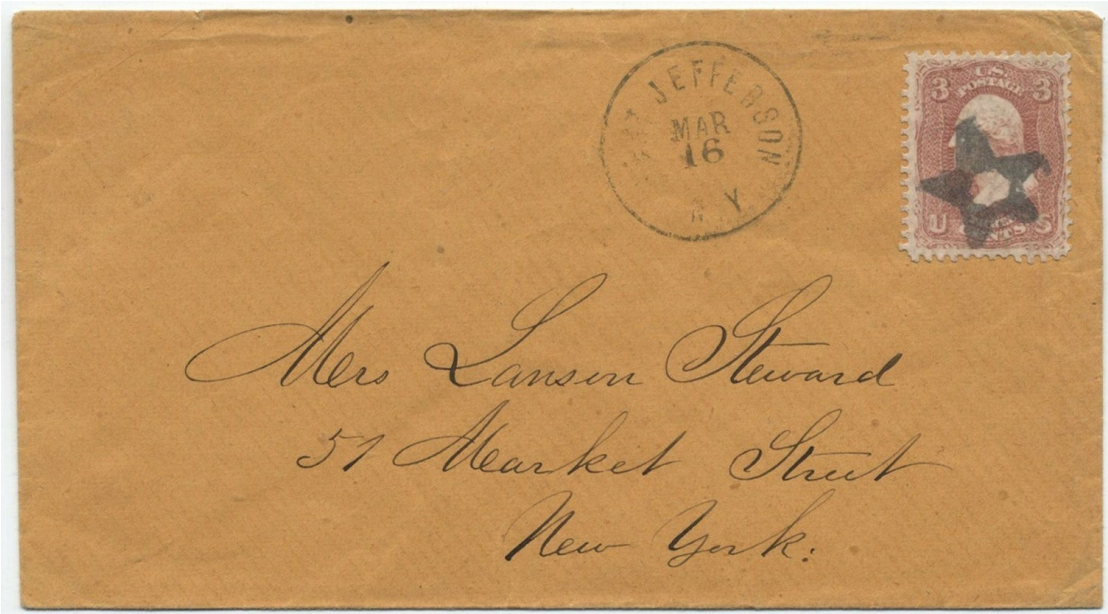 JEFFERSON
MAR
16
N.Y.
3 U.S. POSTAGE 3
U CENTS S
Mrs Lanson Steward
51 Market Street
New York.